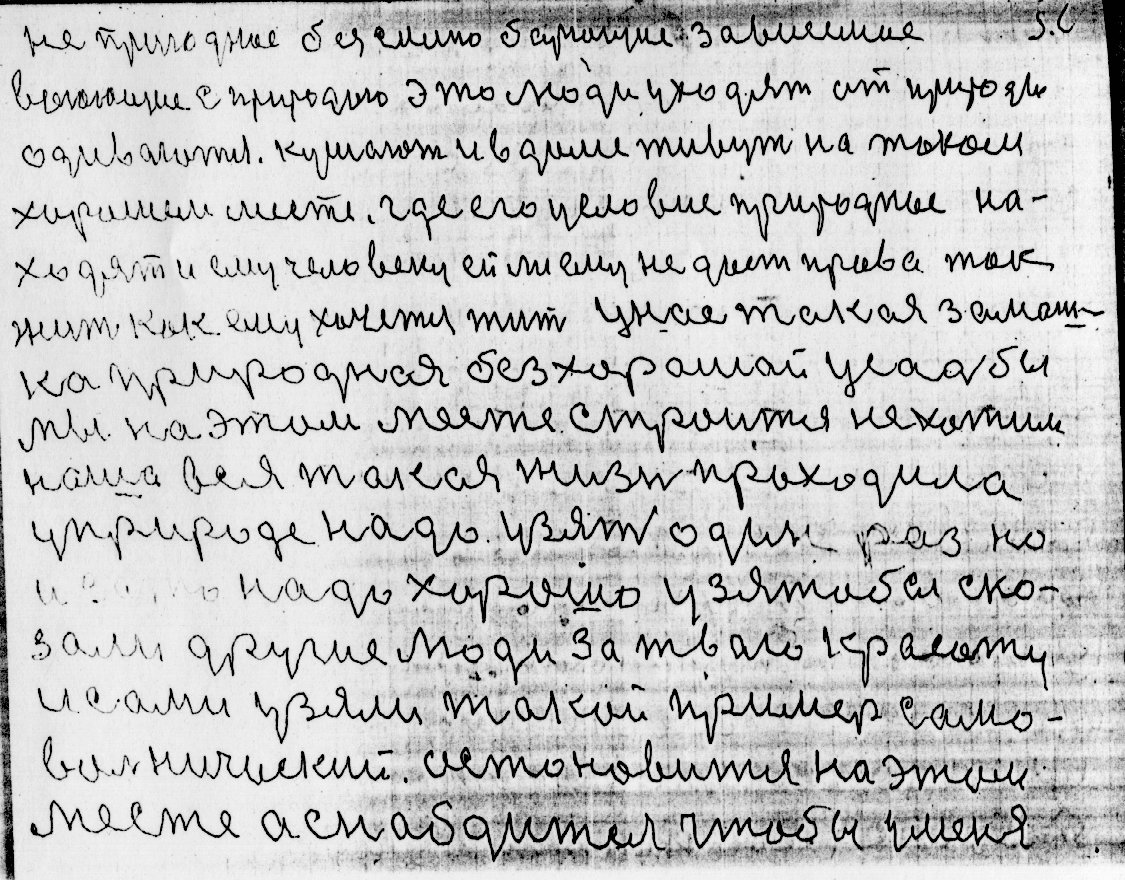 не природное без емко борющие зависемое 56
воюющие с природою это люди уходят от природы
одеваются. кушают и в доме живут на таком
хорошем месте. где его условие природное на-
ходят и ему человеку ей ли ему не даст права так
жит как ему хочется жит у нас такая замаш-
ка природная без хорошай усадбы
мы на этом месте строится не хотим
наша вся такая жизн проходила
у природе надо узят один раз но
надо хорошо узятобы ска-
зали другие люди за тваю красоту
и сами узяли такой пример само-
волническй. остоновится на этом
месте аснабдится чтобы у меня